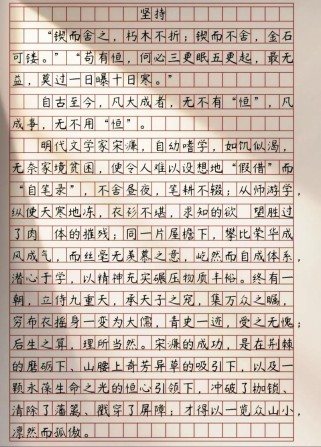 坚持
“锲而舍之，朽木不折；锲而不舍，金石
可镂。”“苟有恒，何必三更眠五更起，最无
益，莫过一日曝十日寒。”
自古至今，凡大成者，无不有“恒”，凡
成事，无不用“恒”。
明代文学家宋濂，自幼嗜学，如饥似渴，
无奈家境贫困，使令人难以设想地“假借”而
“自笔录”，不舍昼夜，笔耕不辍；从师游学，
纵使天寒地冻，衣衫不堪，求知的欲 望胜过
了肉 体的摧残；同一片屋檐下，攀比荣华成
风成气，而丝毫无羡慕之意，屹然而自成体系，
潜心于学，以精神充实碾压物质丰裕。终有一
朝，立侍九重天，承天子之宠，集万众之瞩，
穷布衣摇身一变为大儒，青史一述，受之无愧；
后生之算，理所当然。宋濂的成功，是在荆棘
的磨砺下、山腰上奇芳异草的吸引下，以及一
颗永葆生命之光的恒心引领下，冲破了枷锁、
清除了藩篱、戳穿了屏障；才得以一览众山小，
凛然而孤傲。